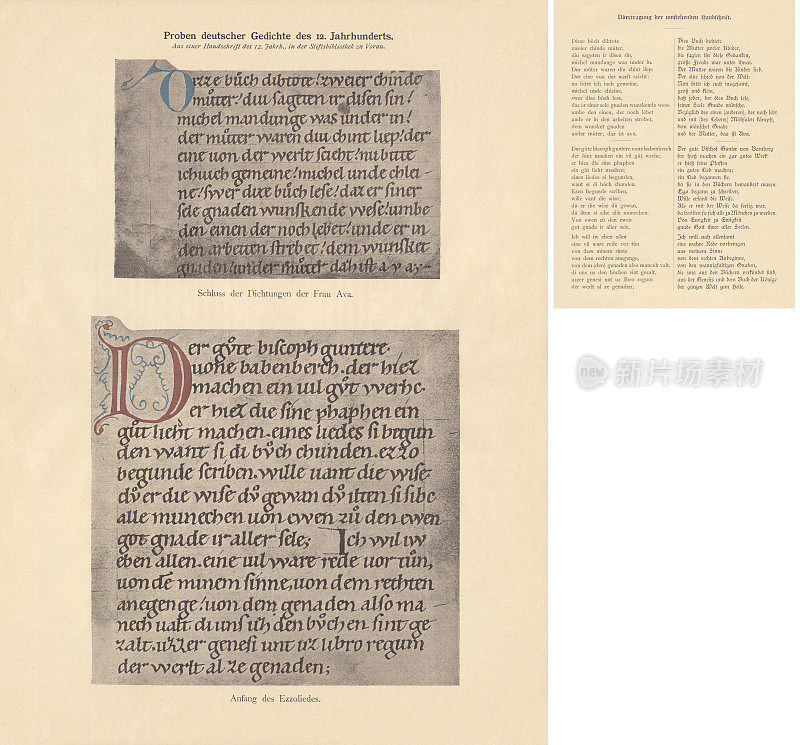 Proben deutscher Gedichte des 12. Jahrhunderts.
Aus einer Handschrift des 12. Jahrh. in der Stiftsbibliothek zu Vorau.
Dizze bůch dihtote! zweier chinde
můter! diu sageten ir disen sin!
michel mandunge was under in!
der můter waren diu chint liep! der
eine von der werlt sciht! nu bitte
ich iuch gemeine! michel unde chlei
ne! swer dize bůch lese! daz er siner
sele gnaden wunskende wese! umbe
den einen der noch lebet! unde er in
den arbeiten strebet! dem wunsket
gnaden! under můter daz ist ava.
Schluss der Dichtungen der Frau Ava.
Der gůte biscoph guntere
vone babenberch. der hiez
machen ein vil gůt werhc.
er hiez die sine phaphen ein
gůt lieht machen. eines liedes si begun
den want si di bůch chunden. ezzo
begunde scriben. wille vant die wise
dů er die wise dů gewan dů ilten si sihc
alle munechen. von ewen zů den ewen
got gnade ir aller sele; Ich wil iw
eben allen. eine vil ware rede vor tůn,
von dem minem sinne, von dem rehten
anegenge! von dem genaden also ma
nech valt di uns uh den bůchen sint ge
zalt. uzzer genesi unt uz libro regum
der werlt al ze genaden;
Anfang des Ezzoliedes.
Übertragung der umstehenden Handschrift.
Dizze bůch dihtote
zweier chinde můter,
diu sageten ir disen sin,
michel mandunge was under in.
Der můter waren diu chint liep.
Der eine von der werlt sciht:
nu bitte ich iuch gemeine,
michel unde chleine,
swer dize bůch lese,
daz er siner sele gnaden wunskende wese.
umbe den einen, der noch lebet
unde er in den arbeiten strebet,
dem wunsket gnaden
under můter, daz ist ava.
Der gůte biscoph guntere vone babenberch
der hiez machen ein vil gůt werhc:
er hiez die sine phaphen
ein gůt lieht machen;
eines liedes si begunden,
want si di bůch chunden.
Ezzo begunde scriben,
wille vant die wise;
dů er die wise dů gewan,
dů ilten si sihc alle munechen.
Von ewen zů den ewen
got gnade ir aller sele.
Ich wil iw eben allen
eine vil ware rede vor tůn
von dem minem sinne
von dem rehten anegenge,
von dem (den) genaden also manech valt,
di uns uz den bůchen sint gezalt,
uzer genesi unt uz libro regum
der werlt al ze genaden;
Dies Buch dichtete
die Mutter zweier Kinder,
die sagten ihr diese Gedanken,
große Freude war unter ihnen.
Der Mutter waren die Kinder lieb.
Der eine schied von der Welt:
Nun bitte ich euch insgesamt,
groß und klein,
daß jeder, der dies Buch lese,
seiner Seele Gnade wünsche.
Bezüglich des einen (anderen), der noch lebt
und mit (des Lebens) Mühsalen kämpft,
dem wünschet Gnade
und der Mutter, das ist Ava.
Der gute Bischof Gunter von Bamberg
der hieß machen ein gar gutes Werk:
er hieß seine Pfaffen
ein gutes Lied machen;
ein Lied begannen sie,
da sie in den Büchern bewandert waren.
Ezzo begann zu schreiben,
Wille erfand die Weise.
Als er mit der Weise da fertig war,
da beeilten sie sich alle zu Mönchen zu werden.
Von Ewigkeit zu Ewigkeit
gnade Gott ihrer aller Seelen.
Ich will euch allesamt
eine wahre Rede vorbringen
aus meinem Sinne
von dem rechten Anbeginne,
von den mannigfaltigen Gnaden,
die uns aus den Büchern verkündet sind,
aus der Genesis und dem Buch der Könige
der ganzen Welt zum Heile.
new 新片场素材